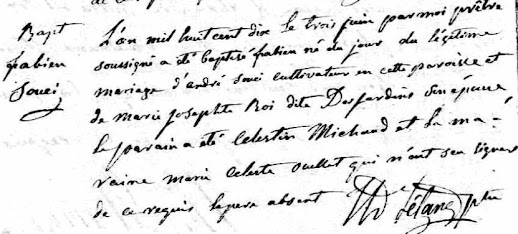 Bapt
fabien
Souci
L'an mil huit cent dix le trois juin par moi prêtre
soussigné a été baptisé fabien né du jour du légitime
mariage d'andré Souci cultivateur en cette paroisse et
de marie josephte Roi dite Desjardins son épouse
le parain a été Celestin Michaud et la ma-
raine marie Celeste Ouellet qui n'ont seu signer
de ce requis le pere absent